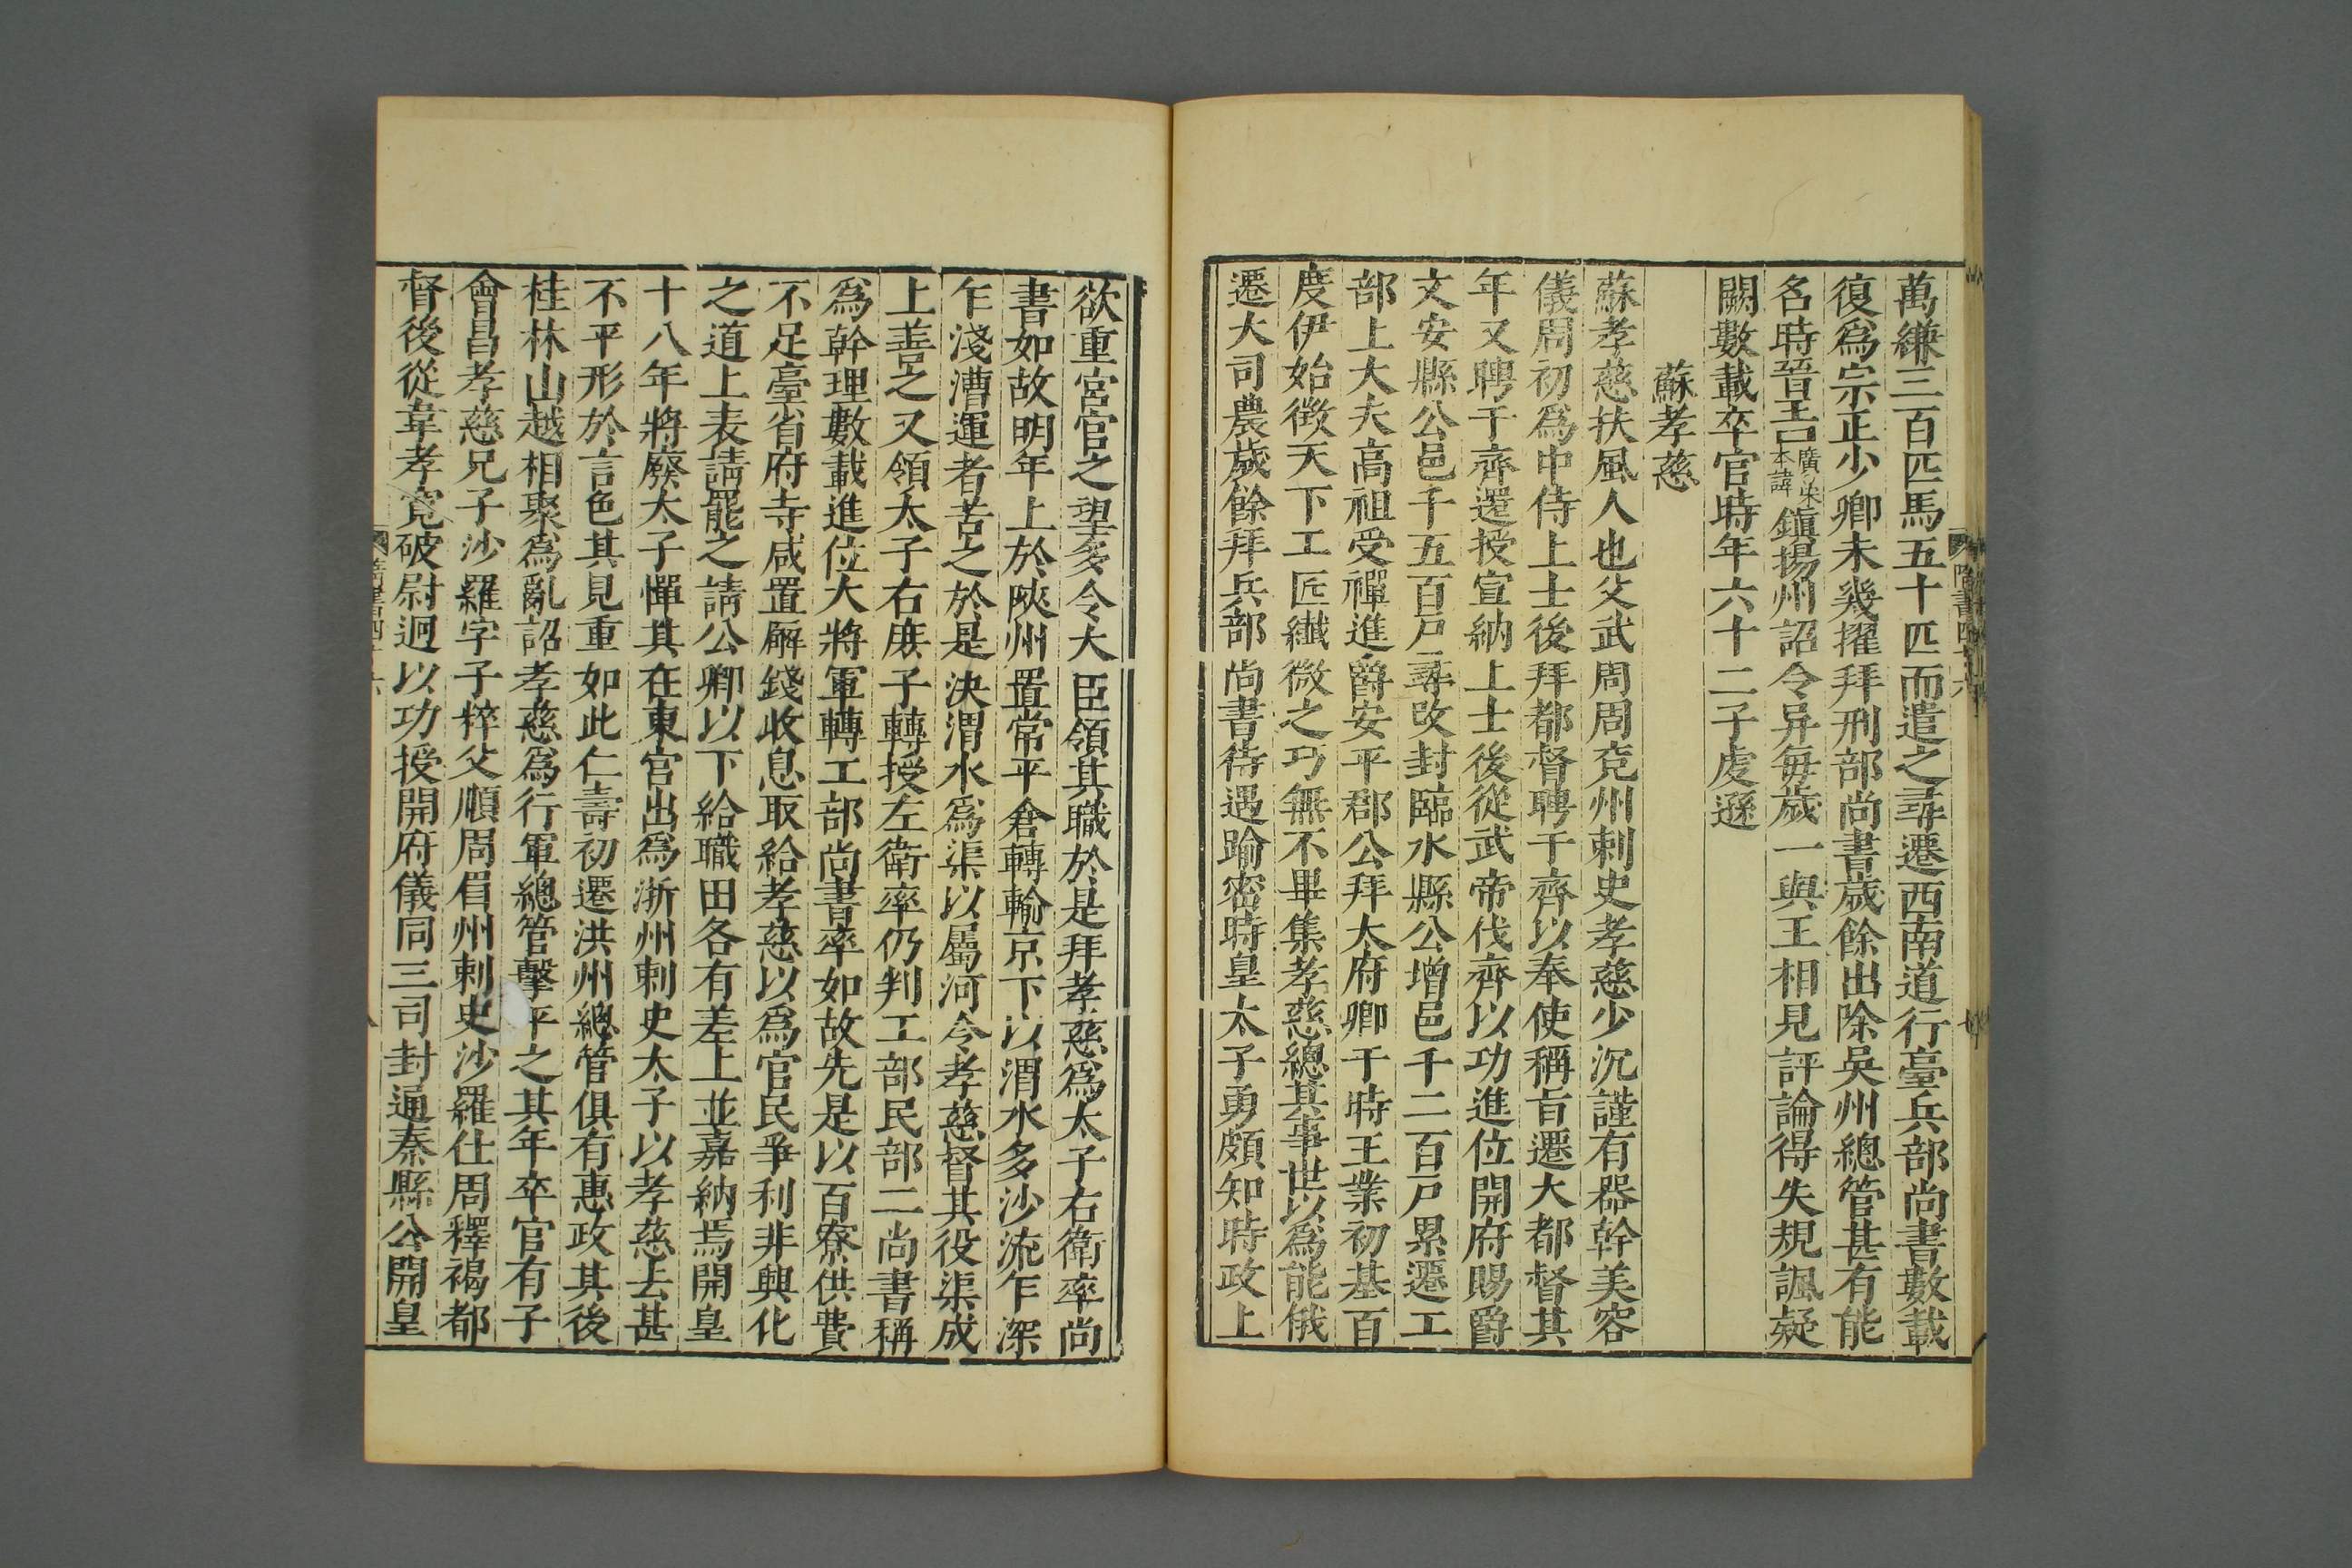 萬縑三百匹馬五十匹而遣之尋遷西南道行臺兵部尚書數載
復爲宗正少卿未幾擢拜刑部尚書歲餘出除吳州總管甚有能
名時晉王廣朱本諱鎮揚州詔令异每歲一與王相見評論得失規諷疑
闕數載卒官時年六十二子虔遜
蘇孝慈
蘇孝慈扶風人也父武周周兗州刺史孝慈少沉謹有器幹美容
儀周初爲中侍上士後拜都督聘于齊以奉使稱旨遷大都督其
年又聘于齊還授宣納上士後從武帝伐齊以功進位開府賜爵
文安縣公邑千五百戸尋改封臨水縣公增邑千二百戸累遷工
部上大夫高祖受禪進爵安平郡公拜太府卿于時王業初基百
度伊始徴天下工匠纎微之巧無不畢集孝慈總其事世以爲能俄
遷大司農歲餘拜兵部尚書待遇踰密時皇太子勇頗知時政上
隋書四十六
欲重宮官之望多令大臣領其職於是拜孝慈爲太子右衛率尚
書如故明年上於陜州置常平倉轉輸京下以渭水多沙流乍深
乍淺漕運者苦之於是決渭水爲渠以屬河令孝慈督其役渠成
上善之又領太子右庶子轉授左衛率仍判工部民部二尚書稱
爲幹理數載進位大將軍轉工部尚書率如故先是以百寮供費
不足臺省府寺咸置廨錢收息取給孝慈以爲官民爭利非興化
之道上表請罷之請公卿以下給職田各有差上並嘉納焉開皇
十八年將廢太子憚其在東宮出爲淅州刺史太子以孝慈去甚
不平形於言色其見重如此仁壽初遷洪州總管俱有惠政其後
桂林山越相聚爲亂詔孝慈爲行軍總管擊平之其年卒官有子
會昌孝慈兄子沙羅字子粹父順周眉州刺史沙羅仕周釋褐都
督後從韋孝寛破尉迥以功授開府儀同三司封通秦縣公開皇